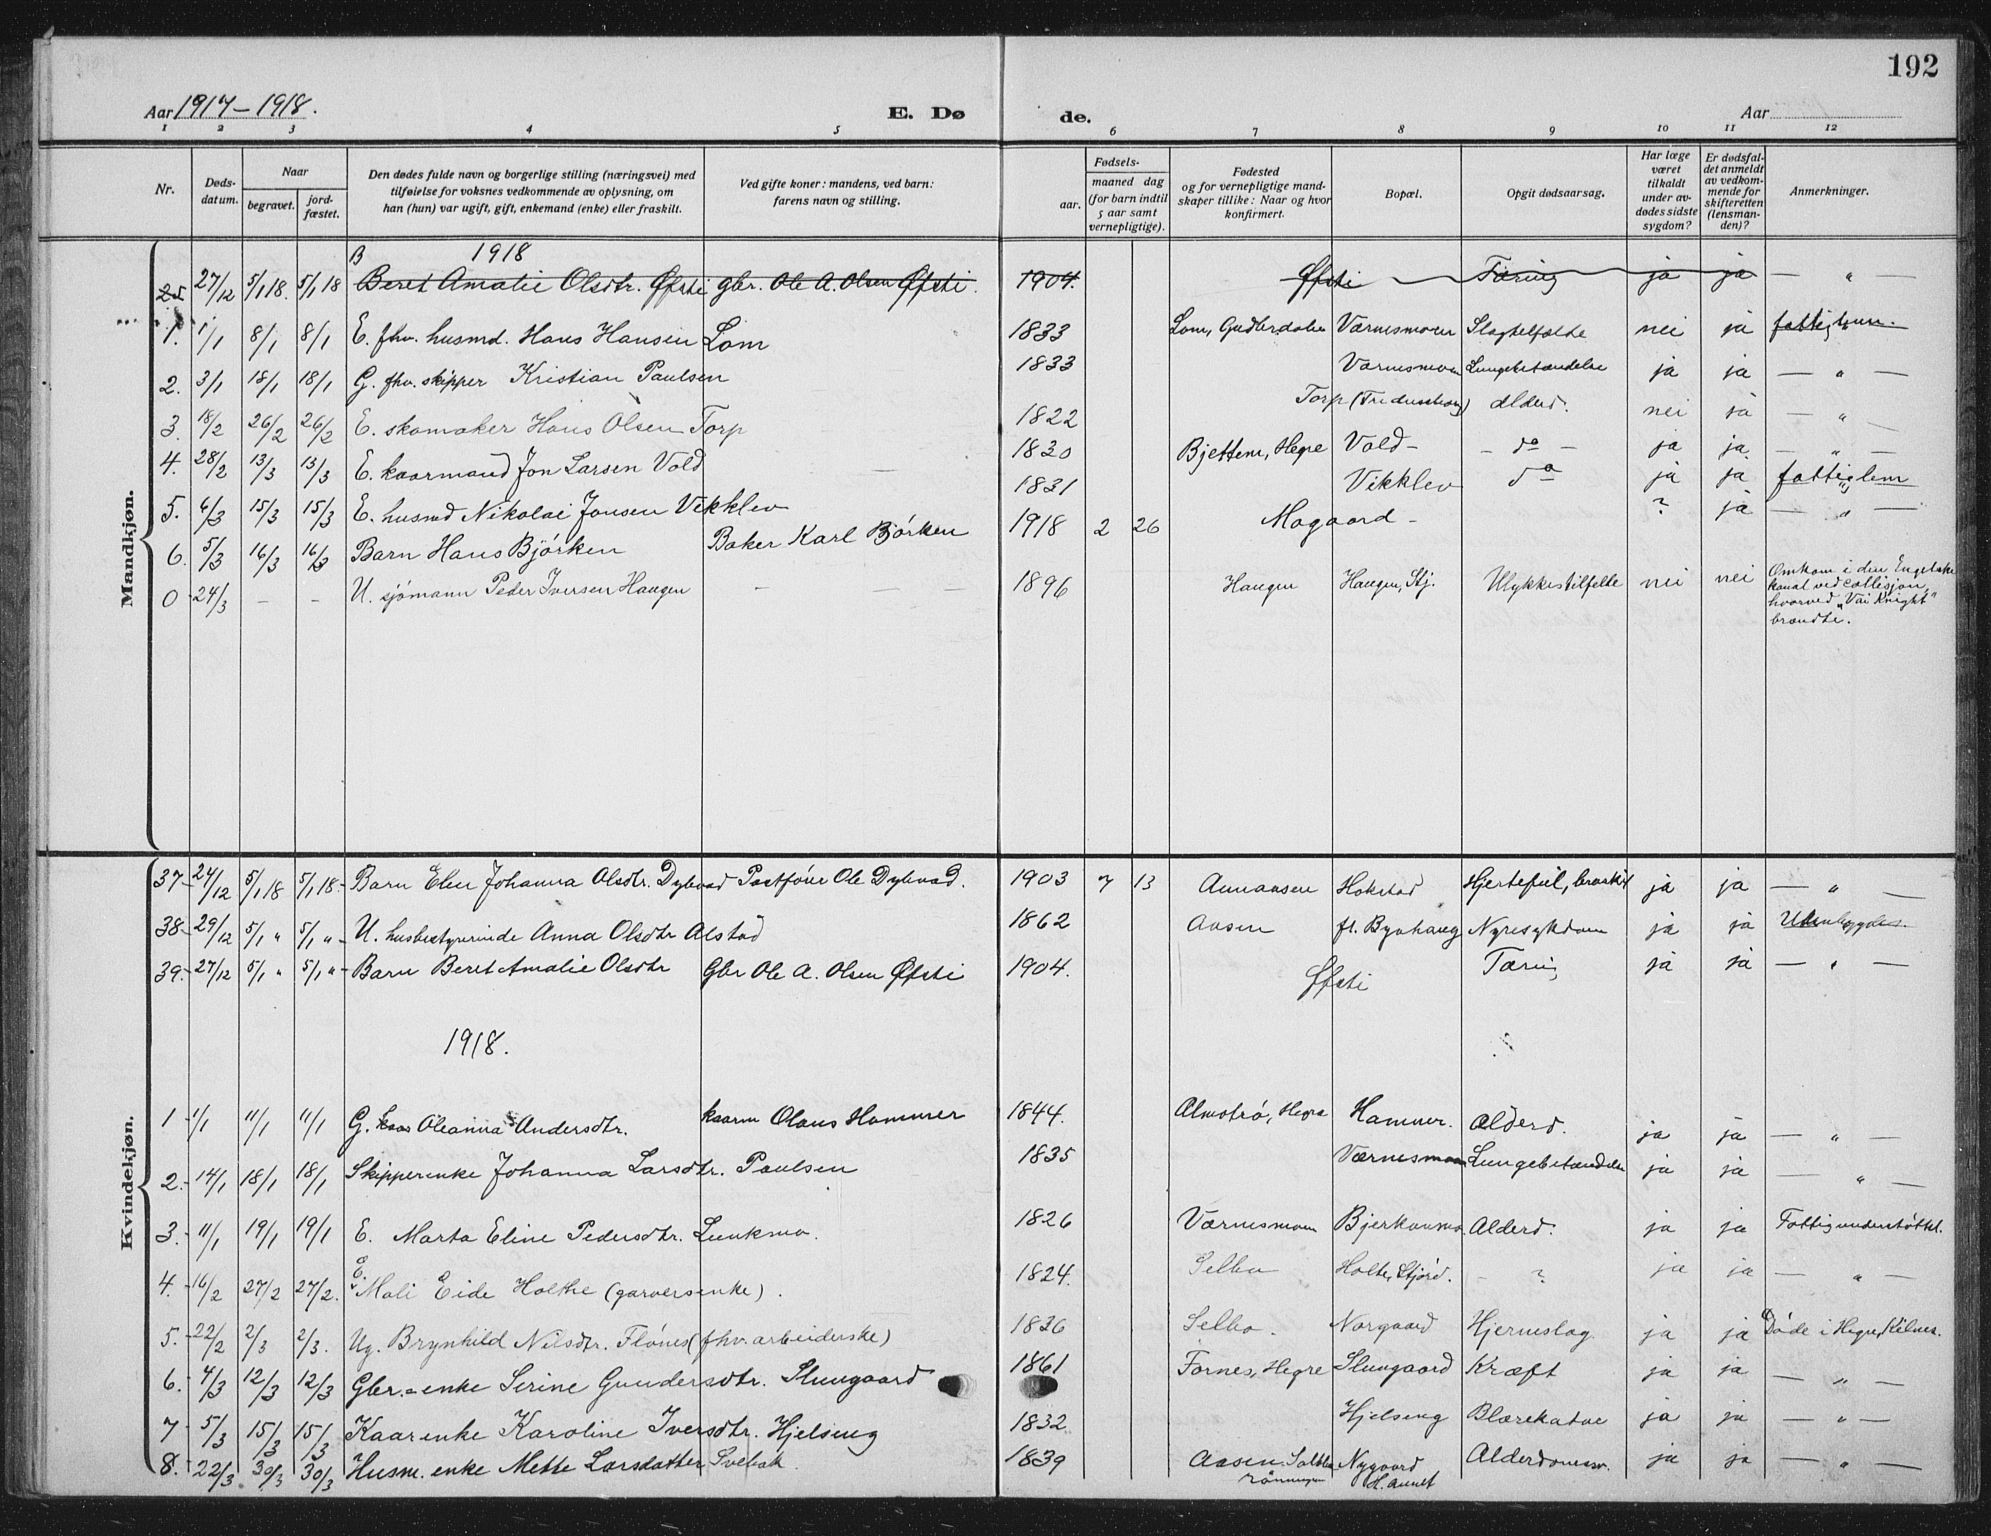 192
Aar 1917-1918.
E. Døde.
Aar
1 2 3 4 5 6 7 8 9 10 11 12
Nr.
Døds-datum.
Naar
begravet.
jord-fæstet.
Den dødes fulde navn og borgerlige stilling (næringsvei) med
tilføielse for voksnes vedkommende av oplysning, om
han (hun) var ugift, gift, enkemand (enke) eller fraskilt.
Ved gifte koner: mandens, ved barn:
farens navn og stilling.
Fødsels-
aar.
maaned dag
(for barn indtil
5 aar samt
vernepligtige).
Fødested
og for vernepligtige mand-
skaper tillike: Naar og hvor
konfirmert.
Bopæl.
Opgit dødsaarsag.
Har læge
været
tilkaldt
under av-
dødes sidste
sygdom?
Er dødsfal-
det anmeldt
av vedkom-
mende for
skifteretten
(lensman-
den)?
Anmerkninger.
Mandkjøn.
B 1918
25 27/12 5/1 18. 5/1 18 Beret Amalie Olsdtr. Øfsti gbr. Ole A. Olsen Øfsti. 1904. Øfsti Tæring ja ja — " —
1. 1/1 8/1 8/1 E. fhv. husmd. Hans Hansen Lom 1833 Lom, Gudbrdalen Værnesmoen Slagtilfælde nei ja
2. 3/1 18/1 18/1 G. fhv. skipper Kristian Paulsen 1833 Værnesmoen Lungebetændelse ja ja — " —
3. 18/2 26/2 26/2 E. skomaker Hans Olsen Torp 1822 Torp alderd. nei ja — " —
4. 28/2 13/3 13/3 E. kaarmand Jon Larsen Vold — 1830 Bjettem, Hegre Vold — — do — ja ja — " —
5. 6/3 15/3 15/3 E. husmd Nikolai Jonsen Vikklev 1831 Vikklev do ja ja fattiglem
6. 5/3 16/3 16/3 Barn Hans Bjørken Baker Karl Bjørken 1918 2 26 Mogaard — ? ja — " —
0 24/3 — — U. sjømann Peder Iversen Haugen — — — 1896 Haugen Haugen, Stj. Ulykkestilfelle nei nei Omkom i den Engelske
kanal ved collisjon,
hvorved "Vai Knight"
brændte.
Kvindekjøn.
37 - 24/12 5/1 18 5/1 18 - Barn Elen Johanna Olsdtr. Dybvad Postfører Ole Dybvad. 1903 7 13 Annansen Hokstad Hjertefeil, ja ja — " —
38 - 29/12 5/1 " 5/1 " - U. husbestyrerinde Anna Olsdtr Alstad 1862 Aasen fl. Byahaug Nyresykdom ja ja Utenbygdes.
39. - 27/12 5/1 " 5/1 " - Barn Beret Amalie Olsdtr Gbr Ole A. Olsen Øfsti 1904. Øfsti Tæring ja ja — " —
1918.
1 - 1/1 11/1 11/1 G. Oleanna Andersdtr. kaarm Olaus Hammer 1844. Almotrø, Hegre Hammer. Alderd. ja ja — " —
2. - 14/1 18/1 18/1 Skipperenke Johanna Larsdtr. Paulsen 1835 Værnesmoen Lungebetændelse ja ja — " —
3. - 11/1 19/1 19/1 E. Marta Eline Pedersdtr. Lunkmo. 1826 Værnesmoen Bjerkanmo. Alderd. ja ja Fattigunderstøttet.
4. - 16/2 27/2 27/2. E. Mali Eide Holthe (garversenke). 1824. Selbu Holte, Stjørd. - ? ja ja — " —
5. - 22/2 2/3 2/3. Ug. Brynhild Nilsdtr. Flønes (fhv. arbeiderske) 1836 Selbu. Norgaard Hjerneslag ja ja Døde i Hegre, Kilnes.
6. - 4/3 12/3 12/3 Gbr.-enke Serine Gundersdtr. Slungaard 1861 Fornes, Hegre Slungaard Kræft ja ja — " —
7 - 5/3 15/3 15/3 Kaarenke Karoline Iversdtr. Hjelseng 1832 Hjelseng Blærekatar ja ja — " —
8. - 22/3 30/3 30/3 Husm. enke Mette Larsdatter Svebak. 1839 Aasen Nygaard Alderdomssv. ja ja — " —
rønningen H. annet